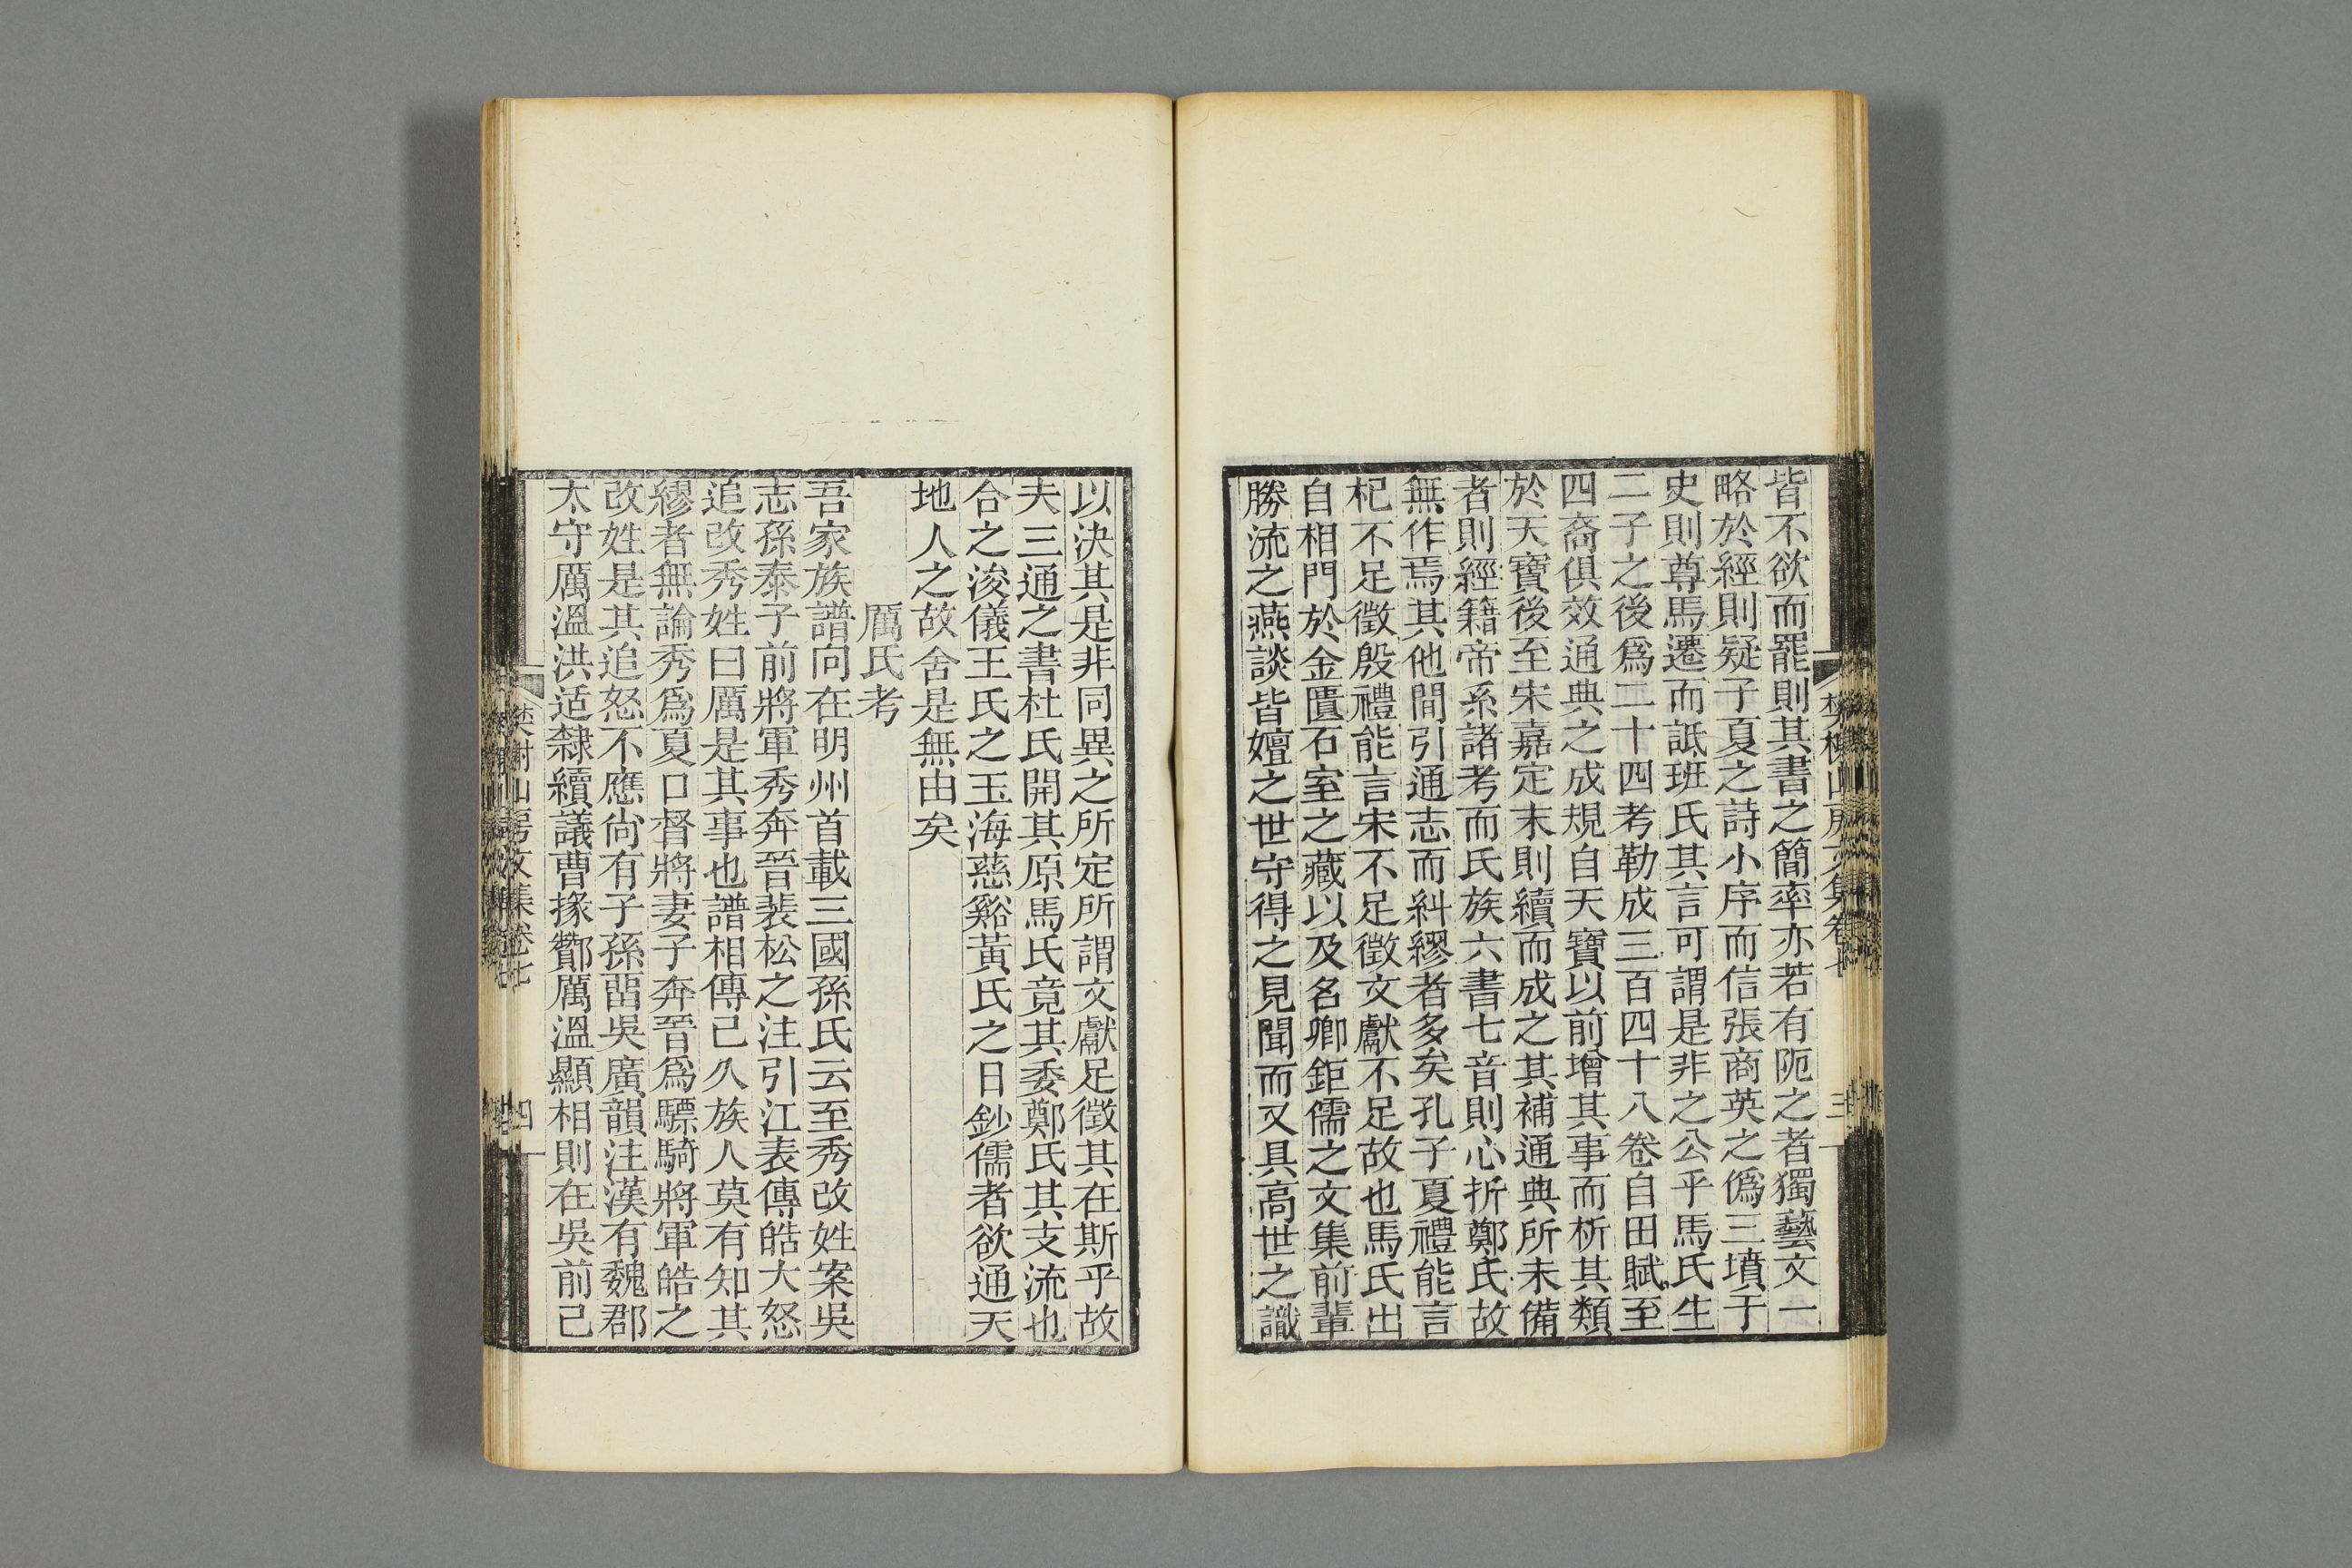 皆不欲而罷則其書之簡率亦若有阨之者獨藝文一
略於經則疑子夏之詩小序而信張商英之僞三墳于
史則尊馬遷而詆班氏其言可謂是非之公乎馬氏生
二子之後爲二十四考勒成三百四十八卷自田賦至
四裔俱效通典之成規自天寶以前增其事而析其類
於天寶後至宋嘉定末則續而成之其補通典所未備
者則經籍帝系諸考而氏族六書七音則心折鄭氏故
無作焉其他間引通志而糾繆者多矣孔子夏禮能言
杞不足徵殷禮能言宋不足徵文獻不足故也馬氏出
自相門於金匱石室之藏以及名卿鉅儒之文集前輩
勝流之燕談皆嬗之世守得之見聞而又具高世之識
以決其是非同異之所定所謂文獻足徵其在斯乎故
夫三通之書杜氏開其原馬氏竟其委鄭氏其支流也
合之浚儀王氏之玉海慈谿黃氏之日鈔儒者欲通天
地人之故舍是無由矣
厲氏考
吾家族譜向在明州首載三國孫氏云至秀改姓案吳
志孫泰子前將軍秀奔晉裴松之注引江表傳皓大怒
追改秀姓曰厲是其事也譜相傳已久族人莫有知其
繆者無論秀爲夏口督將妻子奔晉爲驃騎將軍皓之
改姓是其追怒不應尙有子孫畱吳廣韻注漢有魏郡
太守厲溫洪适隸續議曹掾酇厲溫顯相則在吳前已
樊榭山房文集卷七
四